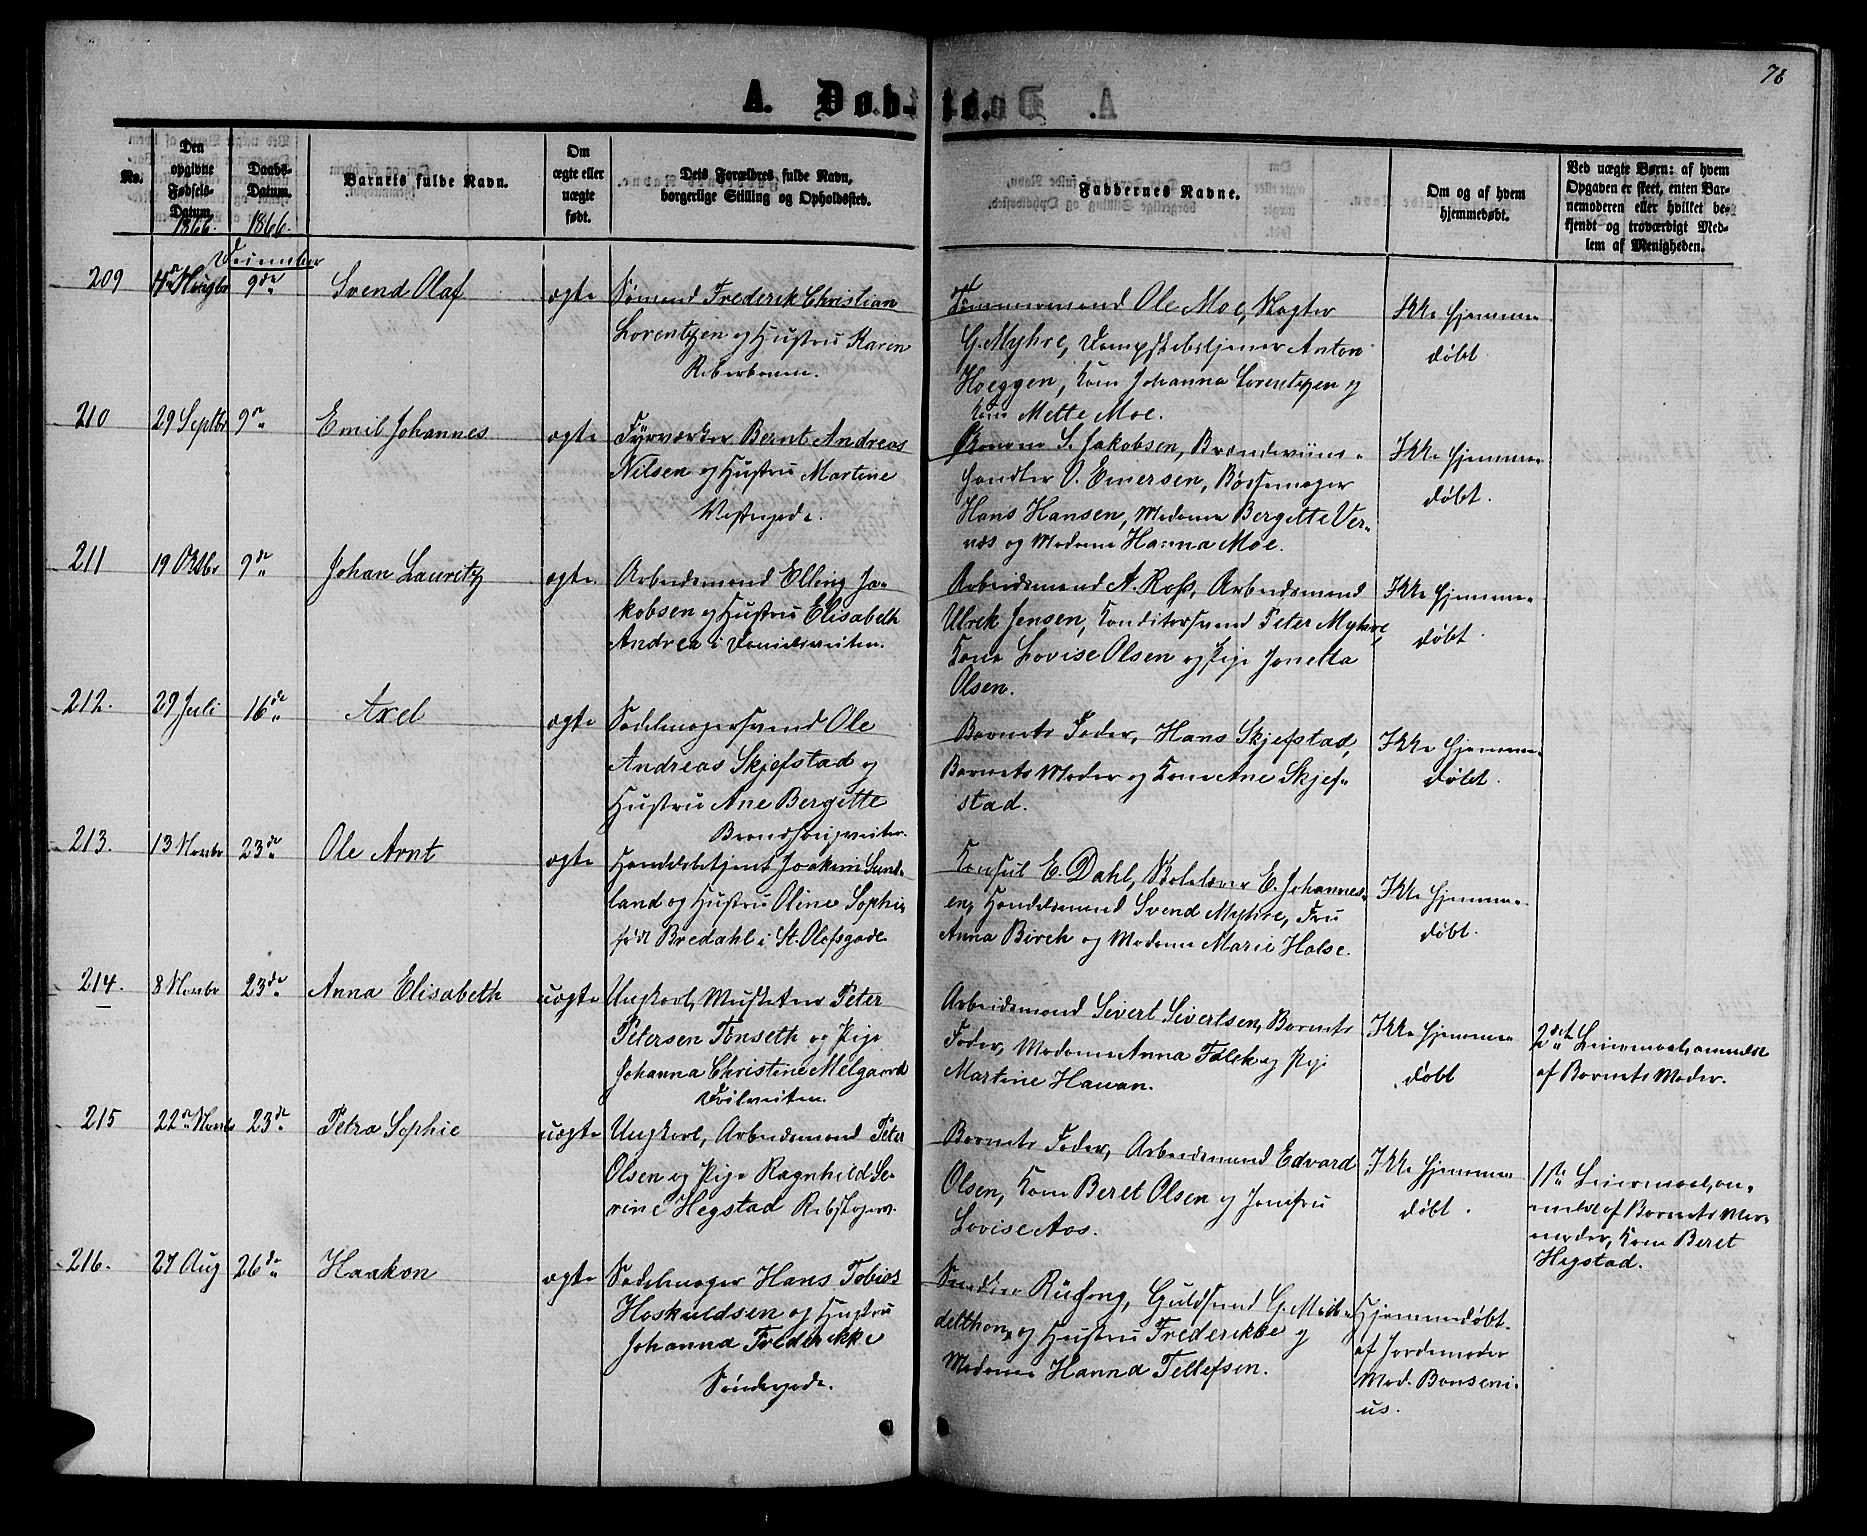 78
A. Døbte.
No.
Den opgivne Fødsels-Datum.
1866.
Daabs-Datum.
1866.
Barnets fulde Navn.
Om ægte eller uægte født.
Dets Forældres fulde Navn, borgerlige Stilling og Opholdssted.
Faddernes Navne.
Om og af hvem hjemmedøbt.
Ved uægte Børn: af hvem Opgaven er skeet, enten Barnemoderen eller hvilket bekjendt og troværdigt Medlem af Menigheden.
December
209
9de
Svend Olaf
ægte
Sømand Frederik Christian
Lorentzen og Hustru Karen
Tømmermand Ole Moe, Vægter
G. Myhre, Dampskibstjener Anton
Hoeggen, Kone Johanna Lorentzen og
Kone Mette Moe.
Ikke hjemme-
døbt.
210
29 Septbr
9de
Emil Johannes
ægte
Fyrværker Bernt Andreas
Nilsen og Hustru Martine
Vestergade.
S. Jakobsen, Brændeviins-
handler O. Emersen, Bøssemager
Hans Hansen, Madame Bergitte Ver-
næs og Madame Hanna Moe.
Ikke hjemme-
døbt.
211
19 Oktbr
9de
Johan Lauritz
ægte.
Arbeidsmand Elling Ja-
kobsen og Hustru Elisabeth
Andrea i Danielsveiten.
Arbeidsmand A. Ross, Arbeidsmand
Ulrik Jensen, Konditorsvend Peter Myhre,
Kone Lovise Olsen og Pige Jonetta
Olsen.
Ikke hjemme-
døbt.
212.
29 Juli
16de
Axel
ægte
Sadelmagersvend Ole
Andreas Skjefstad og
Hustru Ane Bergitte
Barnets Fader, Hans Skjefstad,
Barnets Moder og Kone Ane Skjef-
stad.
Ikke hjemme-
døbt.
213.
13 Novbr
23de
Ole Arnt
ægte
Handelsbetjent Joakim Sund-
land og Hustru Oline Sophie
født Bredahl i St. Olafsgade
Konsul E. Dahl, Skolelærer E. Johannes-
en, Handelsmand Svend Myhre, Fru
Anna Birch og Madame Marie Halse.
Ikke hjemme-
døbt.
214.
8 Novbr
23de
Anna Elisabeth
uægte
Ungkarl, Musketeer Peter
Petersen Tønseth og Pige
Johanna Christine Melgaard
Arbeidsmand Sivert Sivertsen, Barnets
Fader, Madame Anna Falck og Pige
Martine Hawan.
Ikke hjemme-
døbt
2det Leiermaal, anmeldt
af Barnets Moder.
215
22de Novbr
23de
Petra Sophie
uægte
Ungkarl, Arbeidsmand Peter
Olsen og Pige Ragnhild Se-
rine Hegstad
Barnets Fader, Arbeidsmand Edvard
Olsen, Kone Beret Olsen og Jomfru
Lovise Aas.
Ikke hjemme-
døbt.
1ste Leiermaal, an-
meldt af Barnets Mor-
moder, Kone Beret
Hegstad.
216.
27 Aug
26de
Haakon
ægte
Sadelmager Hans Tobias
Hoskuldsen og Hustru
Johanna Frederikke
Søndregade.
Guldsmed G. Mid-
delthon, og Hustru Frederikke og
Madame Hanna Tellefsen.
Hjemmedøbt
af Jordemoder
Mad. Bonseni-
us.